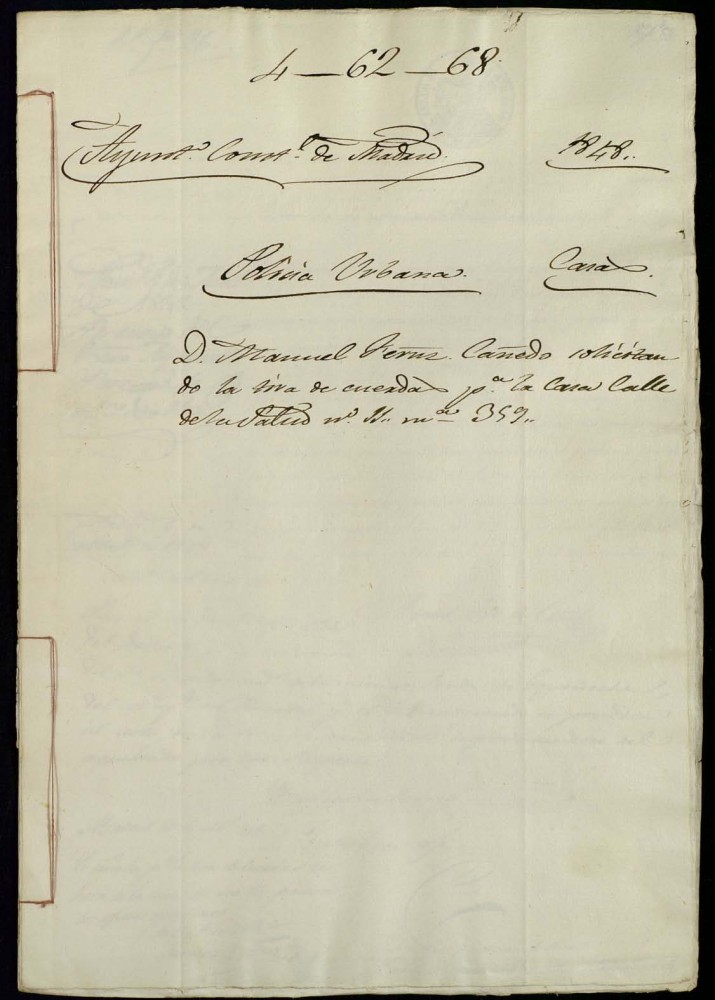 4 — 62 — 68.
Ayunt.º Const.l de Madrid. 1848..
Policia Urbana. Casas.
D. Manuel Fernz. Cañedo solicitan
do la tira de cuerdas p.ª la Casa Calle
de la Salud nº. 11.. mna 359..